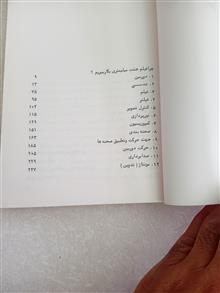 چرا فیلم هشت میلیمتری بکار میبریم ؟
۱. دوربین ۹
۲. عدسی ۱۳
۳. فیلم ۷۵
۴. فیلتر ۹۵
۵. کنترل تصویر ۱۰۳
۶. نورپردازی ۱۱۵
۷. کمپوزیسیون ۱۲۹
۸. صحنه بندی ۱۵۱
۹. جهت حرکت وتطبیق صحنه ها ۱۶۳
۱۰. حرکت دوربین ۱۸۵
۱۱. صدابرداری ۲۰۵
۱۲. مونتاژ ( تدوین ) ۲۲۹
۲۳۷